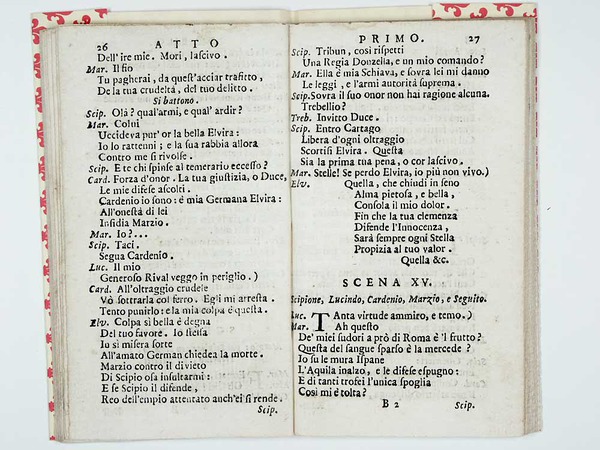 26 ATTO
Dell'ire mie. Mori, lascivo.
Mar. Il fio
Tu pagherai, da quest'acciar trafitto,
De la tua crudeltà, del tuo delitto.
Si battono.
Scip. Olà? qual'armi, e qual'ardir?
Mar. Colui
Uccideva pur'or la bella Elvira:
Io lo rattenni; e la sua rabbia allora
Contro me si rivolse.
Scip. E te chi spinse al temerario eccesso?
Card. Forza d'onor. La tua giustizia, o Duce,
Le mie difese ascolti.
Cardenio io sono: é mia Germana Elvira:
All'onestà di lei
Insidia Marzio.
Mar. Io?...
Scip. Taci.
Segua Cardenio.
Luc. Il mio
Generoso Rival veggo in periglio.)
Card. All'oltraggio crudele
Vò sottrarla col ferro. Egli mi arresta.
Tento punirlo: e la mia colpa è questa.
Elv. Colpa sì bella è degna
Del tuo favore. Io stessa
Io sì misera sorte
All'amato German chiedea la morte.
Marzio contro il divieto
Di Scipio osa insultarmi:
E se Scipio il difende,
Reo dell'empio attentato anch'ei si rende.
Scip.
PRIMO. 27
Scip. Tribun, così rispetti
Una Regia Donzella, e un mio comando?
Mar. Ella é mia Schiava, e sovra lei mi danno
Le leggi, e l'armi autorità suprema.
Scip. Sovra il suo onor non hai ragione alcuna.
Trebellio?
Treb. Invitto Duce.
Scip. Entro Cartago
Libera d'ogni oltraggio
Scortisi Elvira. Questa
Sia la prima tua pena, o cor lascivo.
Mar. Stelle! Se perdo Elvira, io più non vivo.)
Elv. Quella, che chiudi in seno
Alma pietosa, e bella,
Consola il mio dolor.
Fin che la tua clemenza
Difende l'Innocenza,
Sarà sempre ogni Stella
Propizia al tuo valor.
Quella &c.
SCENA XV.
Scipione, Lucindo, Cardenio, Marzio, e Seguito.
Luc. TAnta virtude ammiro, e temo.)
Mar. Ah questo
De' miei sudori a prò di Roma è 'l frutto?
Questa del sangue sparso è la mercede?
Io su le mura Ispane
L'Aquila inalzo, e le difese espugno:
E di tanti trofei l'unica spoglia
Così mi è tolta?
B 2 Scip.